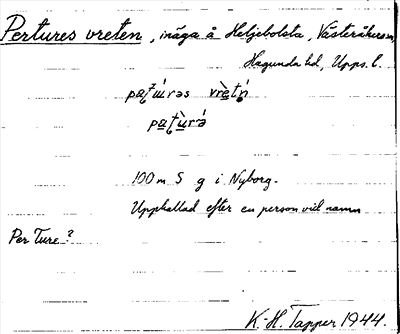 Pertures vreten, inäga å Heljebolsta, Västeråkers sn,
Hagunda hd, Upps. l.
100 m S g i Nyborg.
Uppkallad efter en person vid namn
Per Ture?
K. H. Tapper 1944.